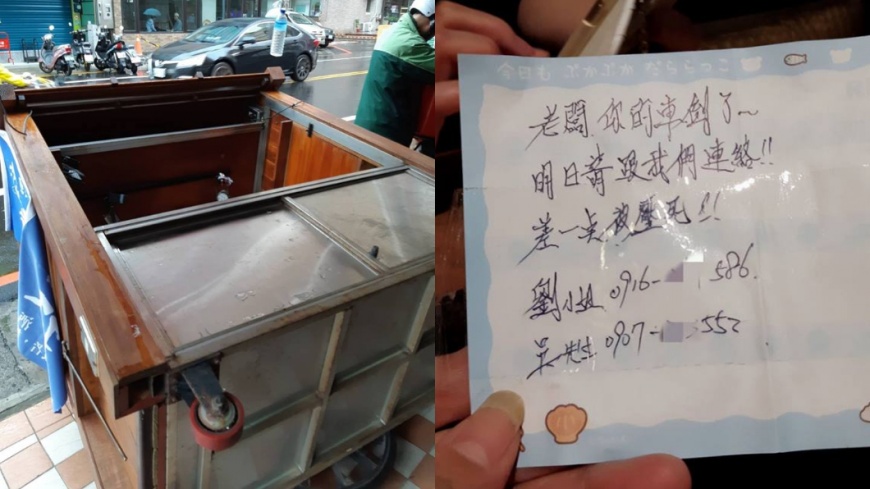 今日も ぷかぷか
老闆 你的車倒了～
明日請跟我們連絡!!
差一点被壓死!!
劉小姐 0916- 586.
吳先生 0907- 552